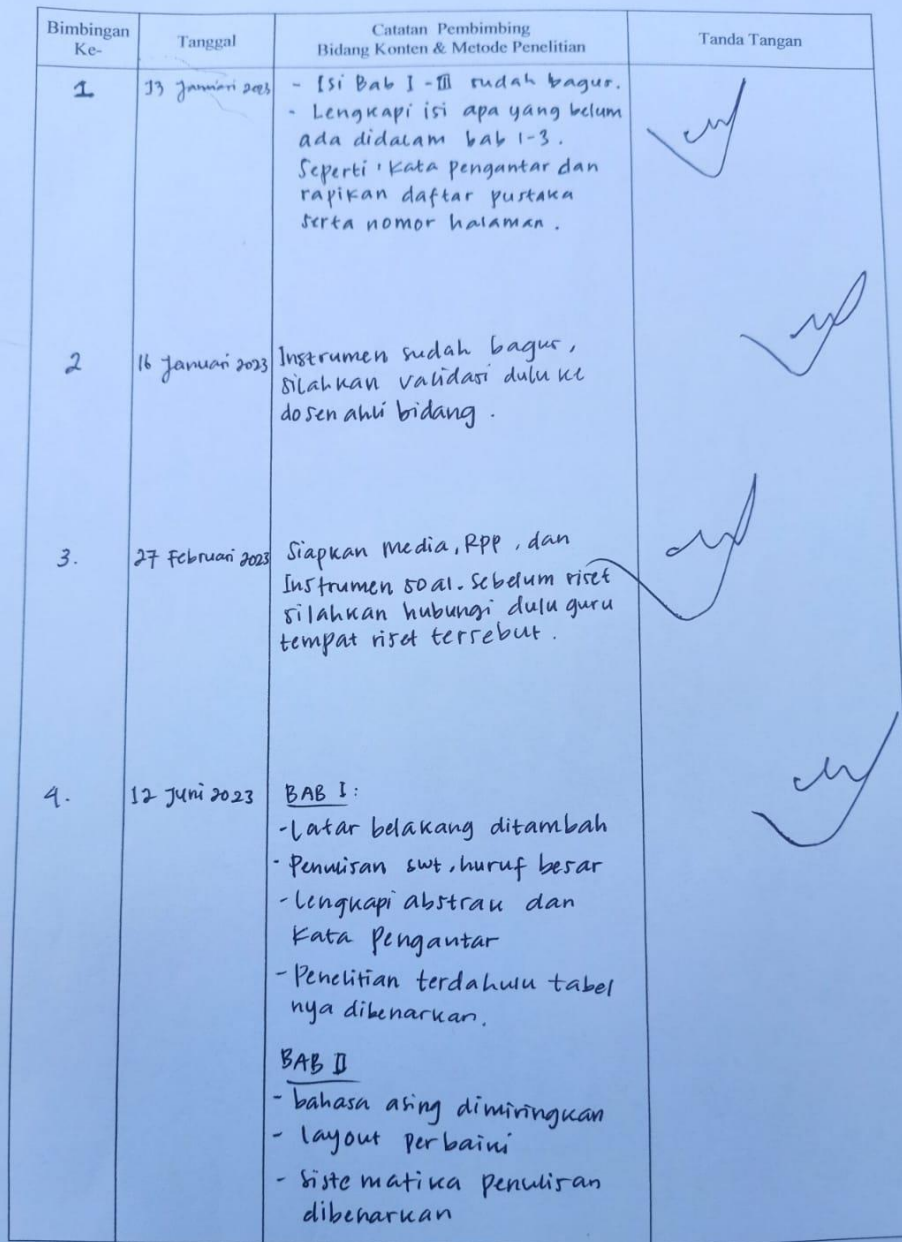 Bimbingan
Ke-
Tanggal
Catatan Pembimbing
Bidang Konten & Metode Penelitian
Tanda Tangan
1
13 Januari 2023
- Isi Bab I - III sudah bagus.
- Lengkapi isi apa yang belum
ada didalam bab 1-3.
Seperti ' Kata pengantar dan
rapikan daftar pustaka
serta nomor halaman.
2
16 Januari 2023
Instrumen sudah bagus,
silahkan validasi dulu ke
dosen ahli bidang.
3.
27 Februari 2023
Siapkan media, RPP, dan
Instrumen soal. Sebelum riset
silahkan hubungi dulu guru
tempat riset tersebut.
4.
12 Juni 2023
BAB I:
- Latar belakang ditambah
- Penulisan swt, huruf besar
- Lengkapi abstrak dan
Kata Pengantar
- Penelitian terdahulu tabel
nya dibenarkan.
BAB II
- bahasa asing dimiringkan
- layout perbaiki
- Sistematika penulisan
dibenarkan